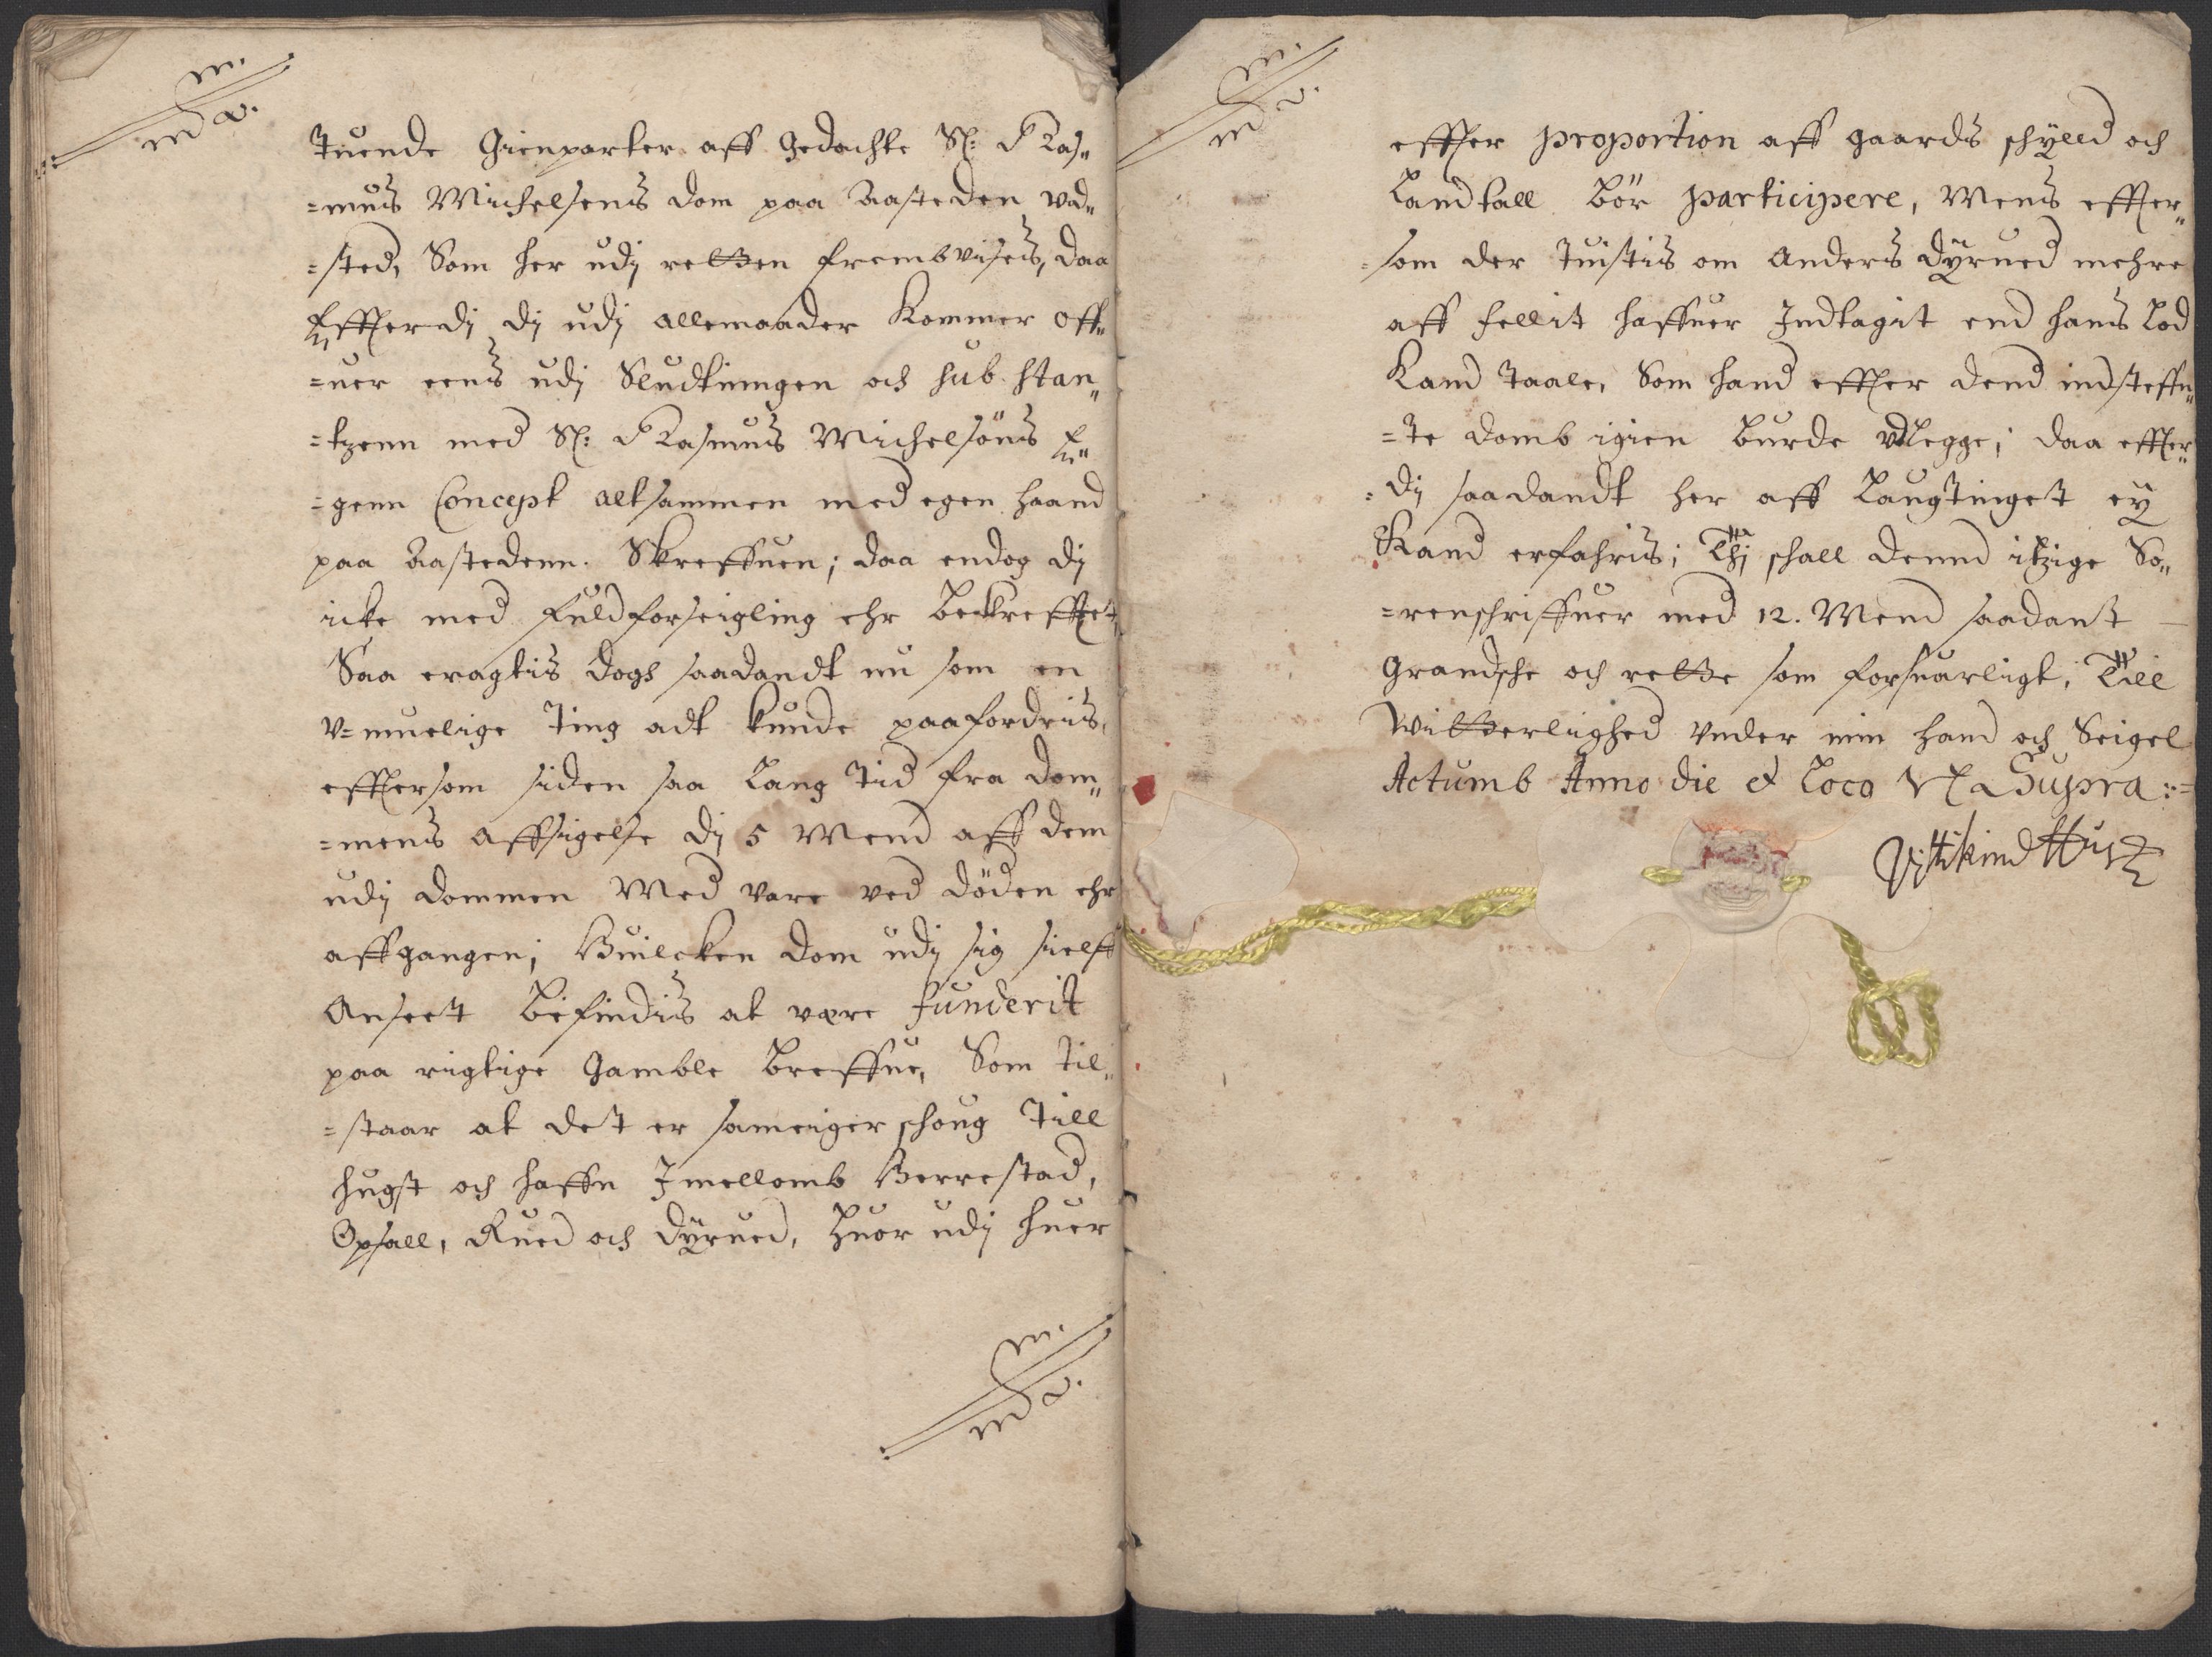 Tuende Gienparter aff Gedachte Sl: Ras„
=mus Michelsens dom paa Aasteden ud„
=sted, Som her udj retten frembvises, daa
Effterdj dj udj allemaader Kommer off„
=uer eens udj Sludtningen och sub stan„
=tzenn med Sl: Rasmus Michelsöns E„
=genn Concept altsammen med egen haand
paa Aastedenn. Skreffuen; daa endog dj
icke med fuld forseigling ehr Bekrefftet,
Saa eragtis dogh saadandt nu som en
v=muelige Ting adt kunde paafordris,
efftersom siden saa Lang Tid fra dom„
=mens affsigelse dj 5 Mend aff dem
udj dommen Med vare ved döden ehr
affgangen; Huilcken dom udj sig sielff
Anseett Befindis at vere funderit
paa rigtige Gamble Breffue, Som til„
=staar at det er sameiger schoug Till
hugst och haffn Imellomb Berrestad,
Opsall, Rued och Dyrued, Huor udj huer
effter proportion aff gaards schylld och
Landtall Bör participere, Mens effter„
=som der Tuistis om Anders Dyrued mehre
aff fellit haffuer Indtagit end hans Lod
Kand Taale, Som hand effter dend indsteffn„
=te domb igien Burde udlegge; daa effter„
=dj saadandt her aff Laugtinget ey
Kand erfahris; Thj schall dennd itzige So„
=renschriffuer med 12. Mend saadant
Grandsche och rette som forsuarligt, Till
Witterlighed under min Hand och Seigel
Actumb Anno die et Loco Vt Supra :=
Vittikind Hus